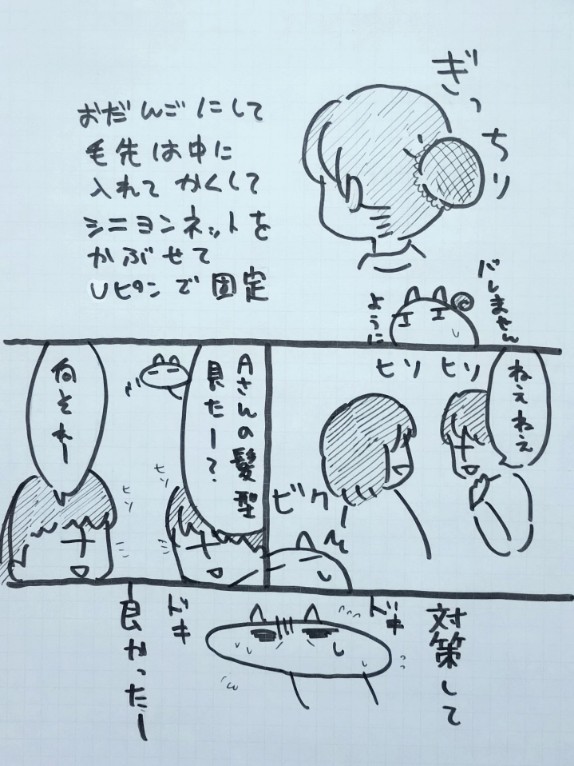 ぎっちり
おだんごにして
毛先は中に
入れてかくして
シニヨンネットを
かぶせて
Uピンで固定
バレません
ように
ねえねえ
ヒソ
ヒソ
ビク
Aさんの髪型
見たー?
ヒソ
何それー
ヒソ
対策して
ドキ
ドキ
良かったー